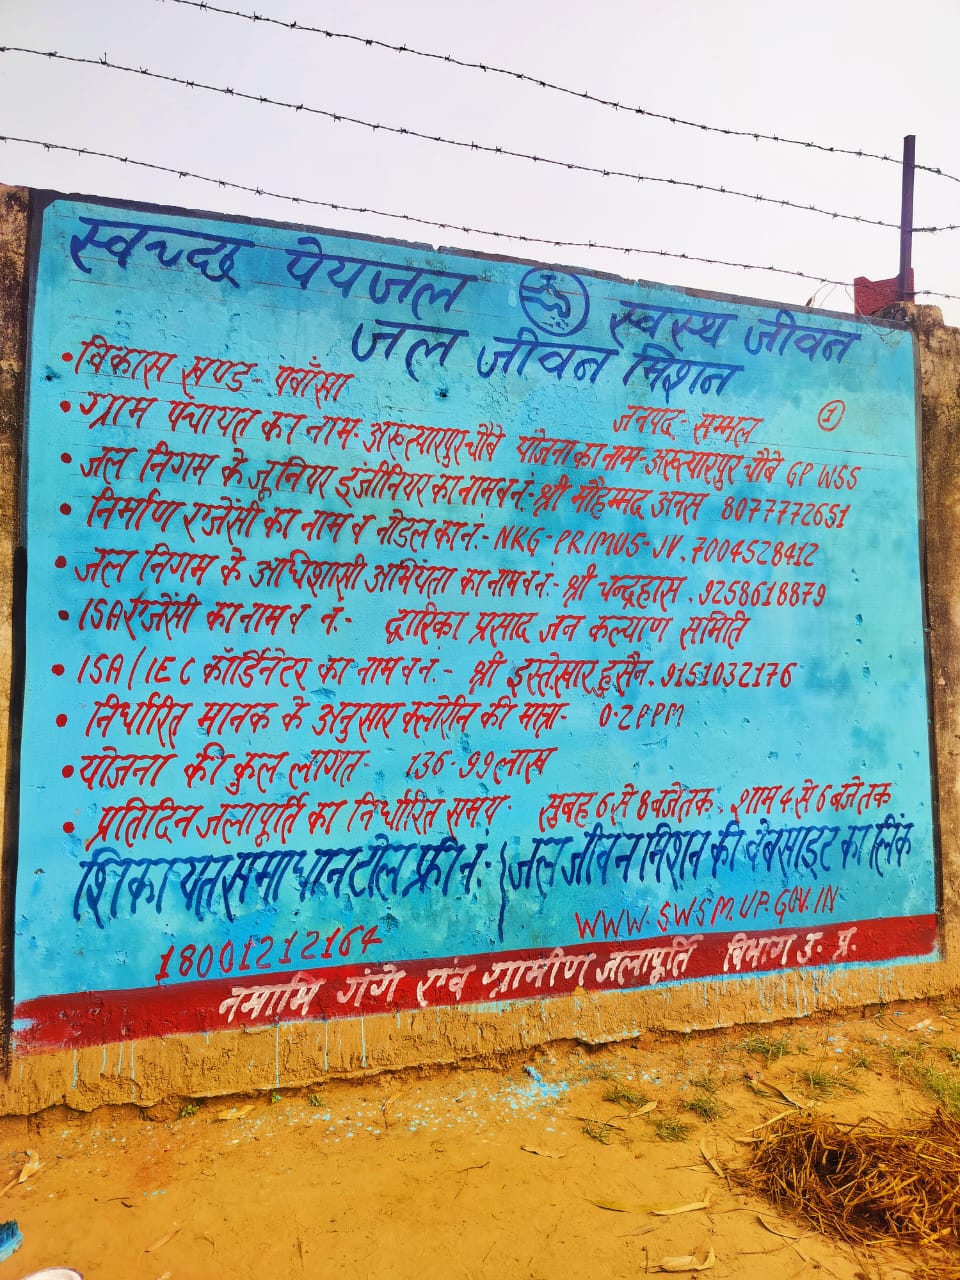 स्वच्छ पेयजल स्वस्थ जीवन
जल जीवन मिशन
विकास खण्ड- पवाँसा जनपद- सम्भल ①
ग्राम पंचायत का नाम- अख्त्यारपुर चौबे योजना का नाम- अख्त्यारपुर चौबे GP WSS
जल निगम के जूनियर इंजीनियर का नाम व नं- श्री मौहम्मद अनस 8077772651
निर्माण एजेंसी का नाम व नोडल का नं.- NKG-PRIMUS-JV, 7004528412
जल निगम के अधिशासी अभियंता का नाम व नं- श्री चन्द्रहास, 9258618879
ISA एजेंसी का नाम व नं.- द्वारिका प्रसाद जन कल्याण समिति
ISA/IEC कॉर्डिनेटर का नाम व नं.- श्री इस्तेखार हुसैन, 9151032176
निर्धारित मानक के अनुसार क्लोरीन की मात्रा- 0.2 PPM
योजना की कुल लागत- 136.99 लाख
प्रतिदिन जलापूर्ति का निर्धारित समय- सुबह 6 से 8 बजे तक, शाम 4 से 6 बजे तक
शिकायत समाधान टोल फ्री नं: जल जीवन मिशन की वेबसाइट का लिंक
18001212164 WWW.SWSM.UP.GOV.IN
नमामि गंगे एंव ग्रामीण जलापूर्ति विभाग उ. प्र.